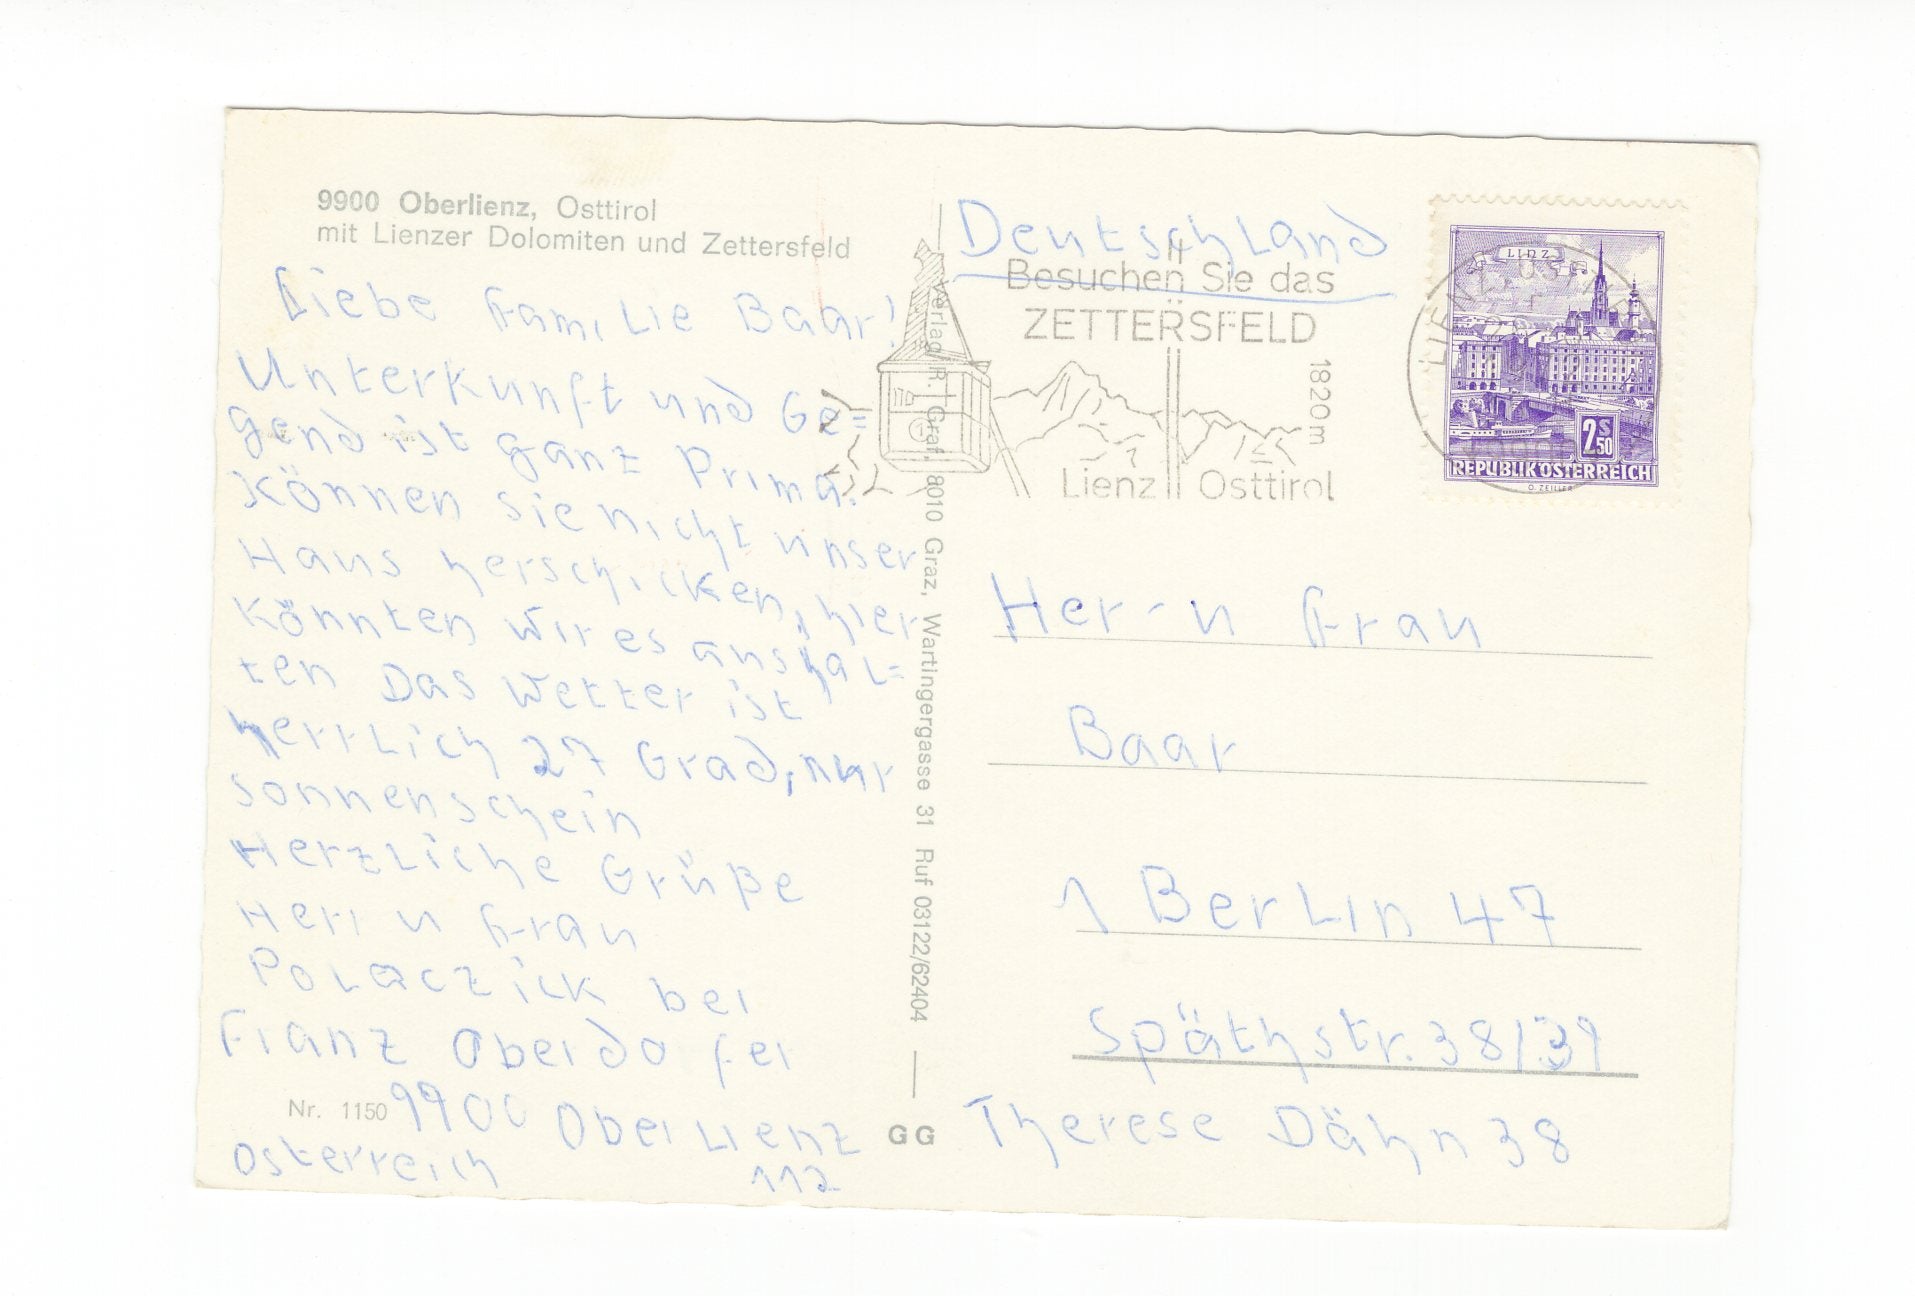 9900 Oberlienz, Osttirol
mit Lienzer Dolomiten und Zettersfeld
Liebe Familie Baar!
Unterkunft und Ge=
gend ist ganz Prima.
Können Sie nicht unser
Haus herschicken, hier
könnten wir es aushal=
ten Das Wetter ist
herrlich 27 Grad, nur
Sonnenschein
Herzliche Grüße
Herr u Frau
Polaczick bei
Franz Oberdorfer
Nr. 1150
9900 Oberlienz
Österreich 112
Verlag R. Graf, 8010 Graz, Wartingergasse 31 Ruf 03122/62404
GG
Deutschland
Besuchen Sie das
ZETTERSFELD
1820 m
Lienz Osttirol
LINZ
2 S 50
REPUBLIK ÖSTERREICH
O. ZEILLER
Herrn u Frau
Baar
1 Berlin 47
Späthstr. 38/39
Therese Dähn 38